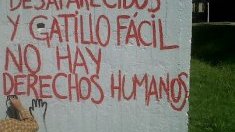 DESAPARECIDOS
Y GATILLO FÁCIL
NO HAY
DERECHOS HUMANOS